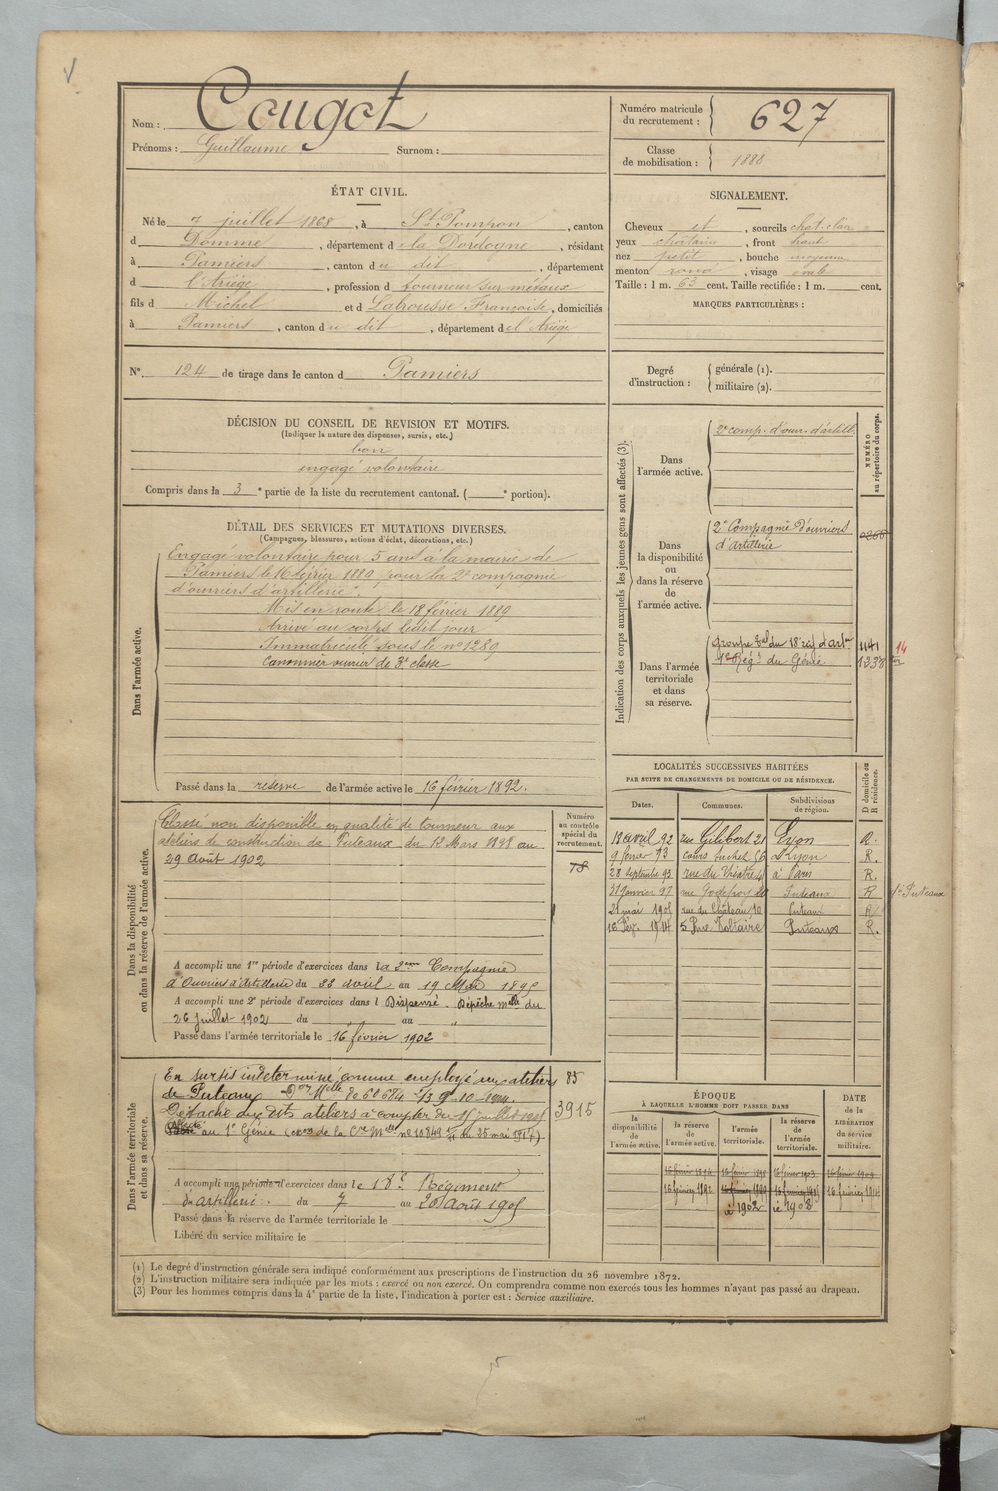 Nom : Cougot
Prénoms : Guillaume Surnom :
Numéro matricule du recrutement : 627
Classe de mobilisation : 1888
ÉTAT CIVIL.
Né le 7 juillet 1868, à St Pompon, canton
d Domme, département de la Dordogne, résidant
à Pamiers, canton du dit, département
d l'Ariège, profession d tourneur sur métaux
fils d Michel et d Labrousse Françoise, domiciliés
à Pamiers, canton du dit, département de l'Ariège
SIGNALEMENT.
Cheveux et, sourcils chat. clair
yeux chatains, front haut
nez petit, bouche moyenne
menton rond, visage ovale
Taille : 1 m. 63 cent. Taille rectifiée : 1 m. cent.
MARQUES PARTICULIÈRES :
N° 124 de tirage dans le canton d Pamiers
Degré d'instruction : générale (1).
militaire (2).
DÉCISION DU CONSEIL DE REVISION ET MOTIFS.
(Indiquer la nature des dispenses, sursis, etc.)
bon
engagé volontaire
Compris dans la 3e partie de la liste du recrutement cantonal. ( e portion).
DÉTAIL DES SERVICES ET MUTATIONS DIVERSES.
(Campagnes, blessures, actions d'éclat, décorations, etc.)
Dans l'armée active.
Engagé volontaire pour 5 ans à la mairie de
Pamiers le 16 février 1889 pour la 2e compagnie
d'ouvriers d'artillerie.
Mis en route le 18 février 1889
Arrivé au corps ledit jour
Immatriculé sous le n° 1289
Canonnier ouvrier de 3e classe
Passé dans la réserve de l'armée active le 16 février 1892.
Indication des corps auxquels les jeunes gens sont affectés (3).
NUMÉRO au répertoire du corps.
Dans l'armée active.
2e comp. d'ouv. d'artill.
Dans la disponibilité ou dans la réserve de l'armée active.
2e Compagnie d'ouvriers
d'Artillerie
Dans l'armée territoriale et dans sa réserve.
groupe tal du 18e rég d'art ie 1141 14
1er Rég t du Génie 1238 ter
Dans la disponibilité ou dans la réserve de l'armée active.
Classé non disponible en qualité de tourneur aux
ateliers de construction de Puteaux du 12 Mars 1898 au
29 Août 1902
Numéro au contrôle spécial du recrutement.
78
A accompli une 1re période d'exercices dans la 2ème Compagnie
d'Ouvriers d'Artillerie du 22 avril au 19 Mai 1895
A accompli une 2e période d'exercices dans l Dispensé. Dépêche mlle du
26 Juillet 1902 du au "
Passé dans l'armée territoriale le 16 février 1902
LOCALITÉS SUCCESSIVES HABITÉES
PAR SUITE DE CHANGEMENTS DE DOMICILE OU DE RÉSIDENCE.
Dates. Communes. Subdivisions de région. D domicile ou R résidence.
18 avril 92 rue Gilibert 21 Lyon R.
9 février 93 cours Suchet 56 Lyon R.
28 septembre 93 rue du Théâtre à Paris R.
31 janvier 97 rue Godefroy Puteaux R
21 mai 1905 rue du Château 10 Puteaux R
16 Fév. 1914 5 Rue Voltaire Puteaux R.
Dans l'armée territoriale et dans sa réserve.
En sursis indeterminé comme employé aux ateliers 85
de Puteaux Don Mlle de 60684 13 du 9-10-1904
Détaché aux dits ateliers à compter du 15 juillet 1905 3915
Affecté au 1er Génie (exon de la Cre Mlle n° 10849 du 25 mai 1917).
A accompli une période d'exercices dans le 18e Régiment
d'artillerie. du 7 au 20 Août 1905
Passé dans la réserve de l'armée territoriale le
Libéré du service militaire le
ÉPOQUE
À LAQUELLE L'HOMME DOIT PASSER DANS
la disponibilité de l'armée active. la réserve de l'armée active. l'armée territoriale. la réserve de l'armée territoriale. DATE de la LIBÉRATION du service militaire.
16 février 1894 16 février 1903
16 février 1892 16 février 1914
à 1902 à 1908
(1) Le degré d'instruction générale sera indiqué conformément aux prescriptions de l'instruction du 26 novembre 1872.
(2) L'instruction militaire sera indiquée par les mots : exercé ou non exercé. On comprendra comme non exercés tous les hommes n'ayant pas passé au drapeau.
(3) Pour les hommes compris dans la 4e partie de la liste, l'indication à porter est : Service auxiliaire.